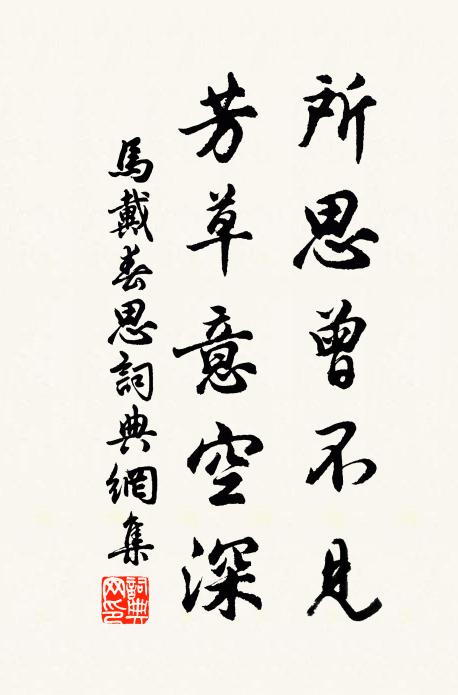 所思曾不見
芳草意空深
馬戴春思詞典網集
詞典網印